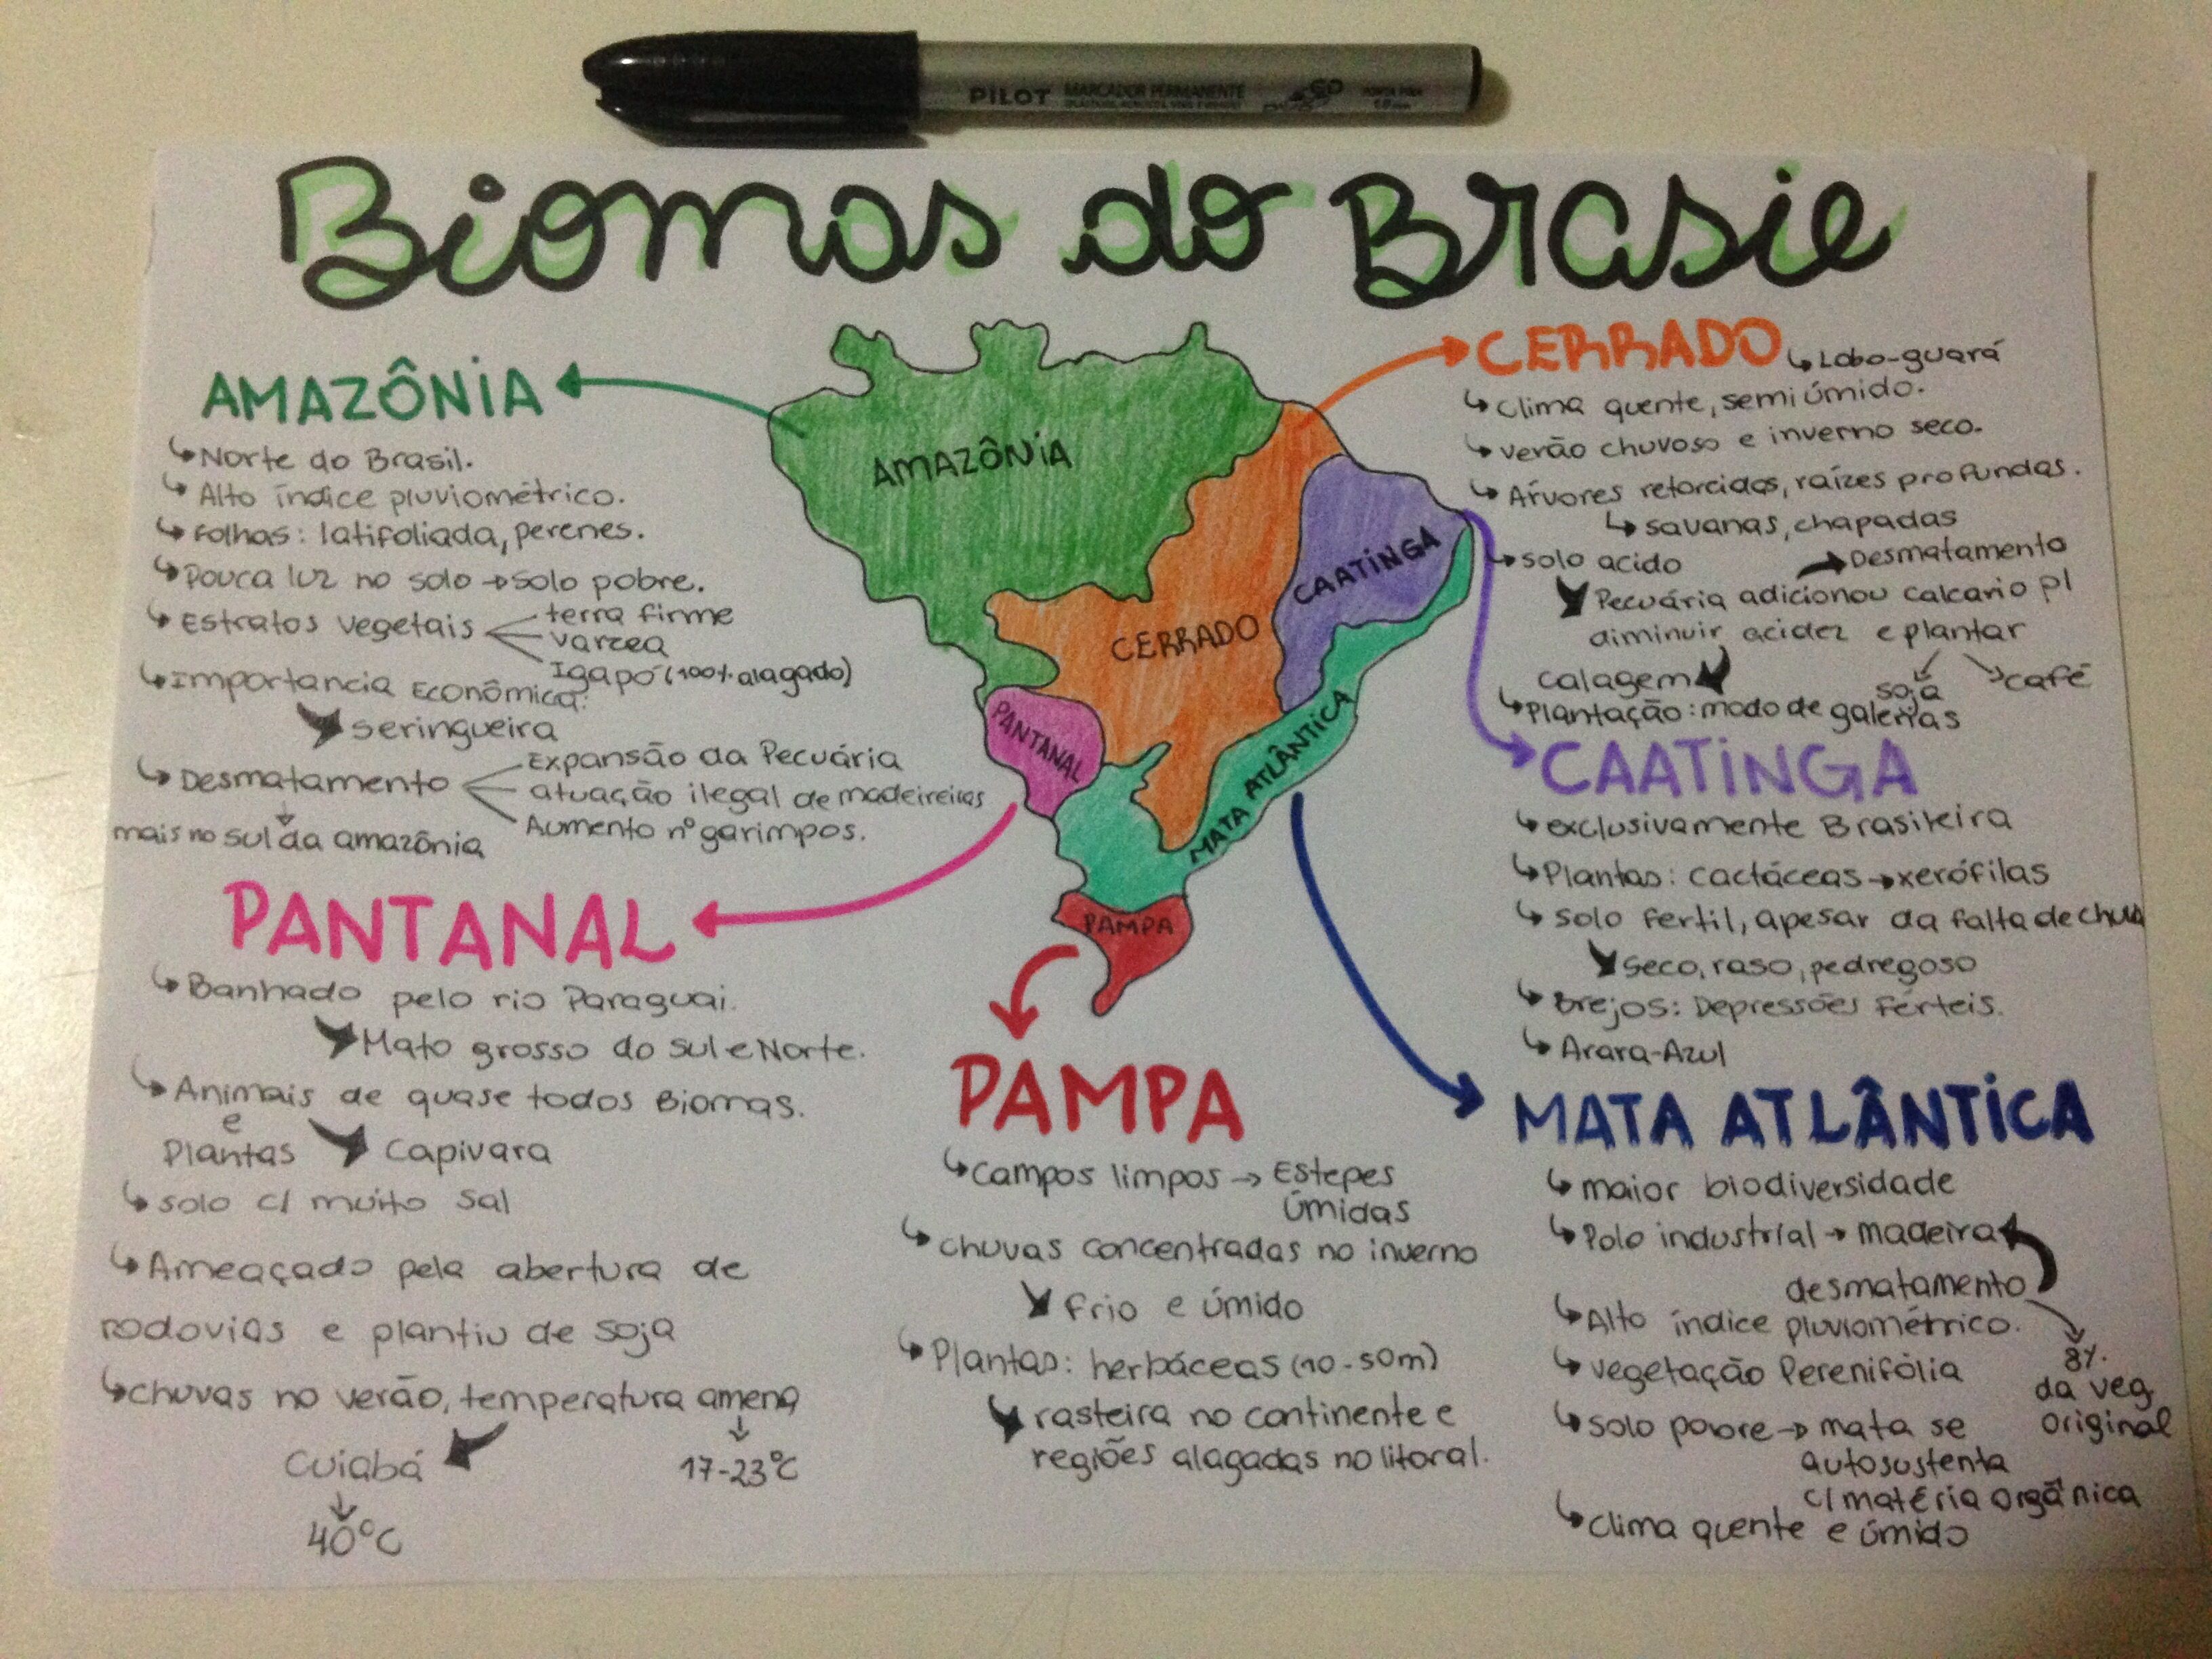 PILOT MARCADOR PERMANENTE
Biomas do Brasil
AMAZÔNIA
↳Norte do Brasil.
↳Alto índice pluviométrico.
↳Folhas: latifoliada, perenes.
↳Pouca luz no solo → Solo pobre.
↳Estratos vegetais
terra firme
varzea
Igapó (100% alagado)
↳Importancia Econômica:
Seringueira
↳Desmatamento
Expansão da Pecuária
atuação ilegal de madeireiras
Aumento nº garimpos.
mais no sul da amazônia
PANTANAL
↳Banhado pelo rio Paraguai.
Mato grosso do sul e Norte.
↳Animais de quase todos Biomas.
e
Plantas
Capivara
↳solo c/ muito sal
↳Ameaçado pela abertura de
rodovias e plantiu de soja
↳chuvas no verão, temperatura amena
Cuiabá
17-23°C
40°C
AMAZÔNIA
CERRADO
CAATINGA
PANTANAL
MATA ATLÂNTICA
PAMPA
PAMPA
↳Campos limpos → Estepes
Úmidas
↳chuvas concentradas no inverno
frio e úmido
↳Plantas: herbáceas (10-50m)
rasteira no continente e
regiões alagadas no litoral.
CERRADO
↳Lobo-guará
↳Clima quente, semi úmido.
↳verão chuvoso e inverno seco.
↳Arvores retorcidas, raízes profundas.
↳savanas, chapadas
↳solo acido
→Desmatamento
Pecuária adicionou calcario p/
diminuir acidez e plantar
calagem
soja
café
↳Plantação: modo de galerias
CAATINGA
↳exclusivamente Brasileira
↳Plantas: cactáceas → xerófilas
↳solo fertil, apesar da falta de chuva
Seco, raso, pedregoso
↳Brejos: Depressões Férteis.
↳Arara-Azul
MATA ATLÂNTICA
↳maior biodiversidade
↳Polo industrial → madeira
desmatamento
↳Alto índice pluviométrico.
8%
da veg
original
↳vegetação Perenifólia
↳solo pobre → mata se
autosustenta
c/ matéria orgânica
↳Clima quente e úmido